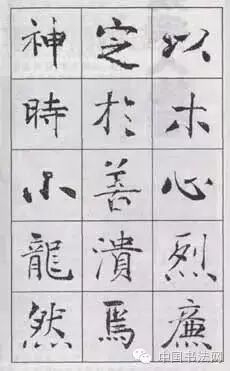 以木心烈廉
定於善潰焉
神時小龍然
中国书法网